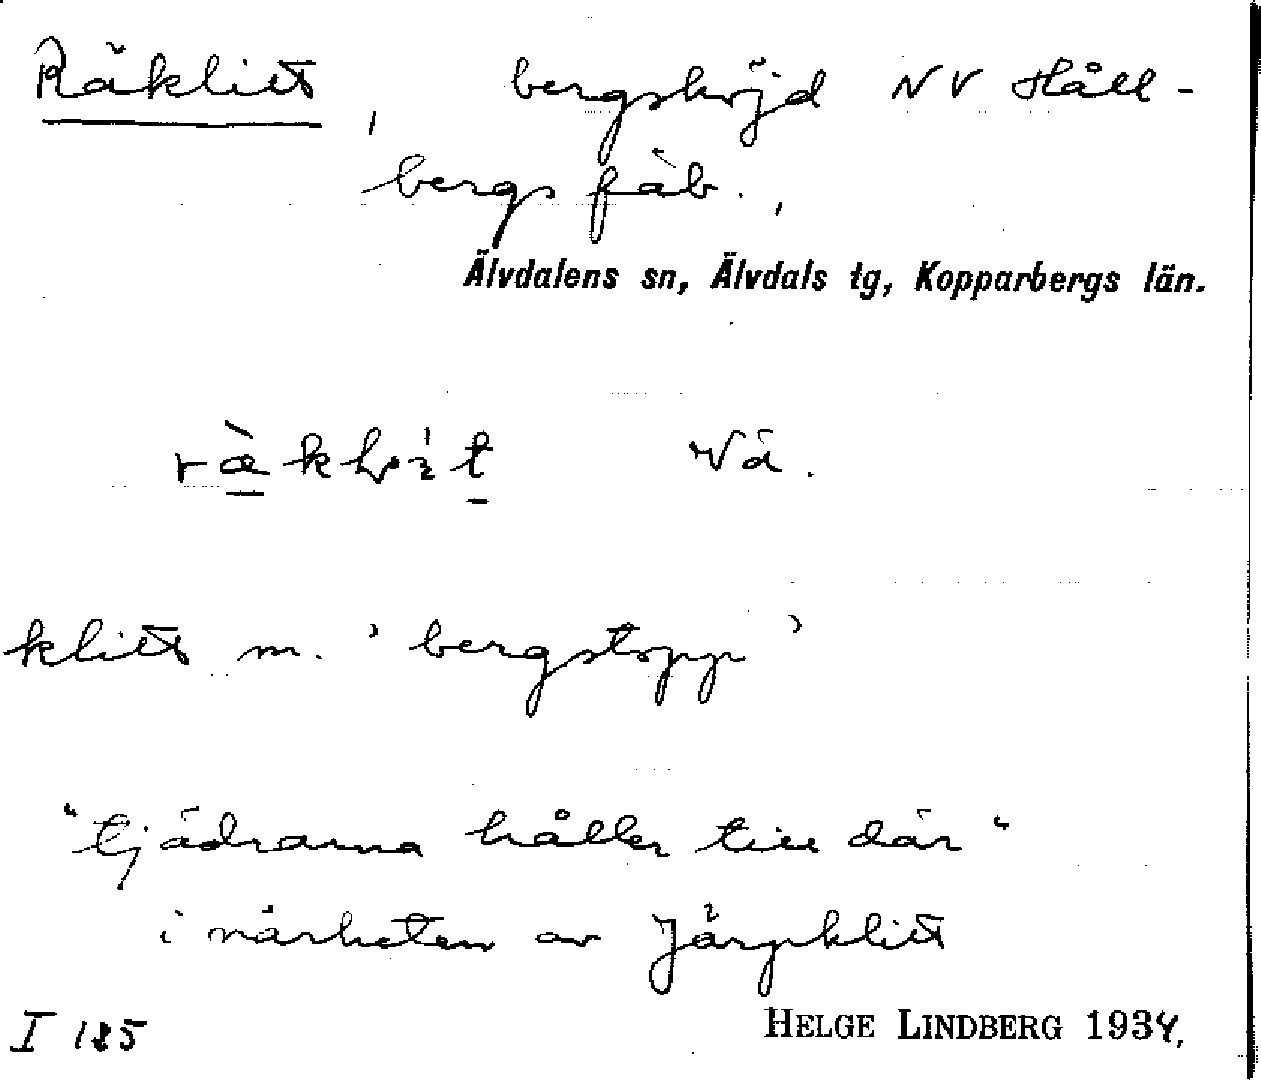 Räklitt, bergshöjd NV Håll-
bergs fäb.,
Älvdalens sn, Älvdals tg, Kopparbergs län.
Vä.
klitt m. ’bergstopp’
"tjädrarna håller till där"
i närheten av Järpklitt
I 185
HELGE LINDBERG 1934,